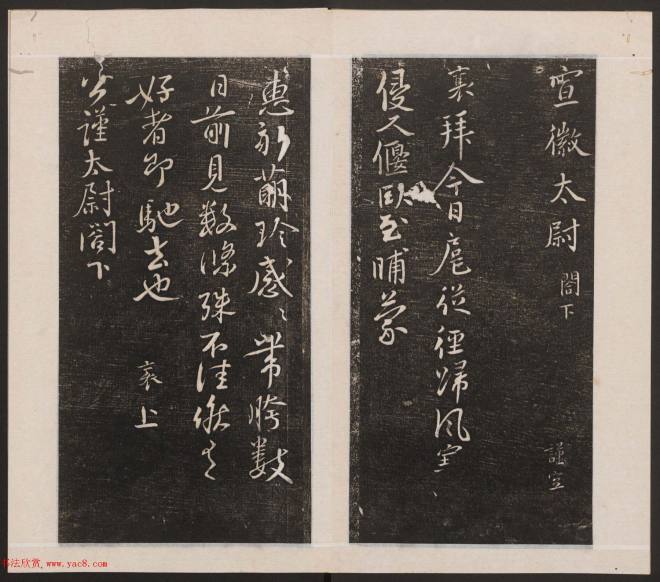 宣徽太尉 閤下 謹空
襄拜今日扈從徑歸風
侵人偃臥至晡蒙
惠新萌珍感〻帶胯數
日前見數條殊不佳候有
好者即馳去也 襄上
公謹太尉閤下
书法欣赏 www.yac8.com